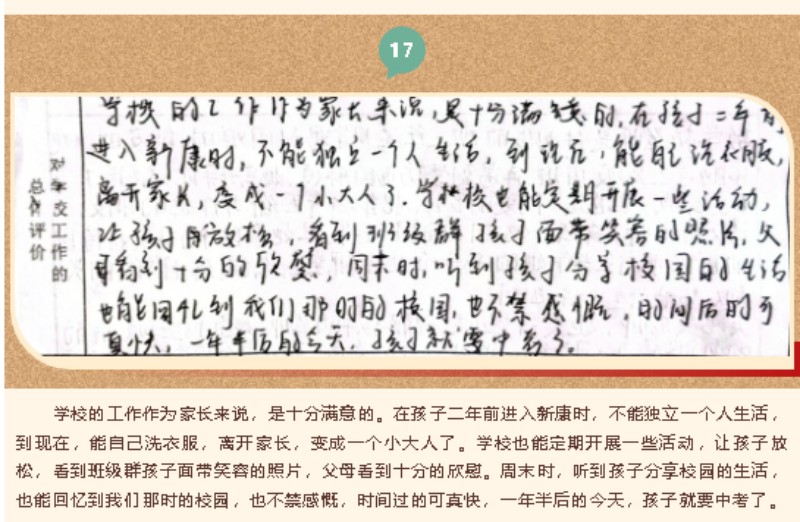 17
对学校工作的
总体评价
学校的工作作为家长来说,是十分满意的。在孩子二年前
进入新康时,不能独立一个人生活,到现在,能自己洗衣服,
离开家长,变成一个小大人了。学校也能定期开展一些活动,
让孩子们放松,看到班级群孩子面带笑容的照片,父
母看到十分的欣慰,周末时,听到孩子分享校园的生活
也能回忆到我们那时的校园,也不禁感慨,时间后的可
真快,一年半后的今天,孩子就要中考了。
学校的工作作为家长来说,是十分满意的。在孩子二年前进入新康时,不能独立一个人生活,
到现在,能自己洗衣服,离开家长,变成一个小大人了。学校也能定期开展一些活动,让孩子放
松,看到班级群孩子面带笑容的照片,父母看到十分的欣慰。周末时,听到孩子分享校园的生活,
也能回忆到我们那时的校园,也不禁感慨,时间过的可真快,一年半后的今天,孩子就要中考了。